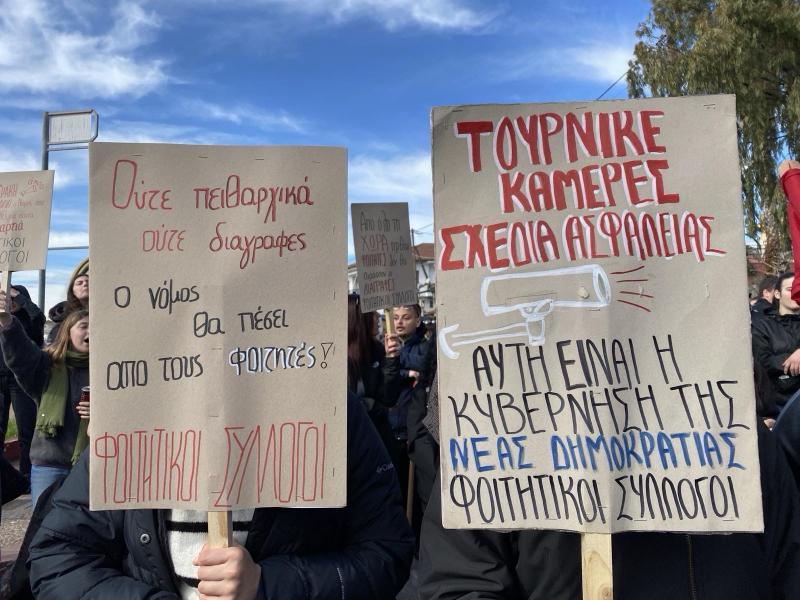 Ούτε πειθαρχικά
ούτε διαγραφες
Ο νόμος
θα πέσει
απο τους φοιτητές!
ΦΟΙΤΗΤΙΚΟΙ ΣΥΛΛΟΓΟΙ
Από όλη τη
ΧΩΡΑ
ΦΟΙΤΗΤΙΚΟΙ ΣΥΛΛΟΓΟΙ
ΤΟΥΡΝΙΚΕ
ΚΑΜΕΡΕΣ
ΣΧΕΔΙΑ ΑΣΦΑΛΕΙΑΣ
ΑΥΤΗ ΕΙΝΑΙ Η
ΚΥΒΕΡΝΗΣΗ ΤΗΣ
ΝΕΑΣ ΔΗΜΟΚΡΑΤΙΑΣ
ΦΟΙΤΗΤΙΚΟΙ ΣΥΛΛΟΓΟΙ